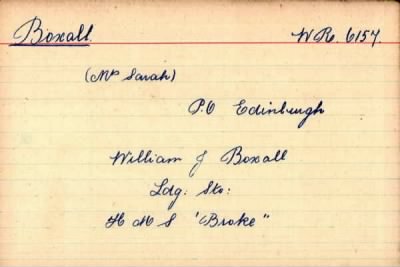 Boxall. W.R. 6157.
(Mrs Sarah)
P.O Edinburgh
William J Boxall
Ldg: Sto:
H M S "Broke"